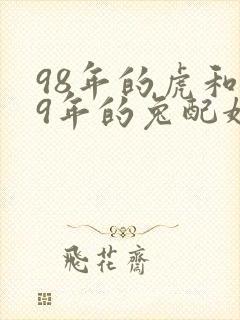 98年的虎和
9年的兔配
飛花齋